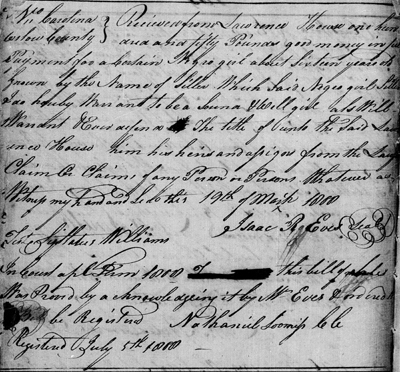 No Carolina } Recieved from Lawrence House one hun
County } dred and fifty Pounds good money in full
Payment for a Certain Negro girl about Sixteen years old
known by the Name of Siller Which Said Negro girl Siller
I do hereby Warrant to be a Sound & Well girl & do Will
Warrant & Ever defend The title of unto the Said Law
rence House him his heirs and assigns from the Lawful
Claim or Claims of any Person or Persons Whatever as
Witness my hand and Seal this 19th of March 1800
Isaac B. Eves Seal
Test Williams
In Court Term 1800 This bill of Sale
Was Proved by acknowledging it by Mr Eves & ordered
to be Registered Nathaniel Loomis CC
Registered July 5th 1800